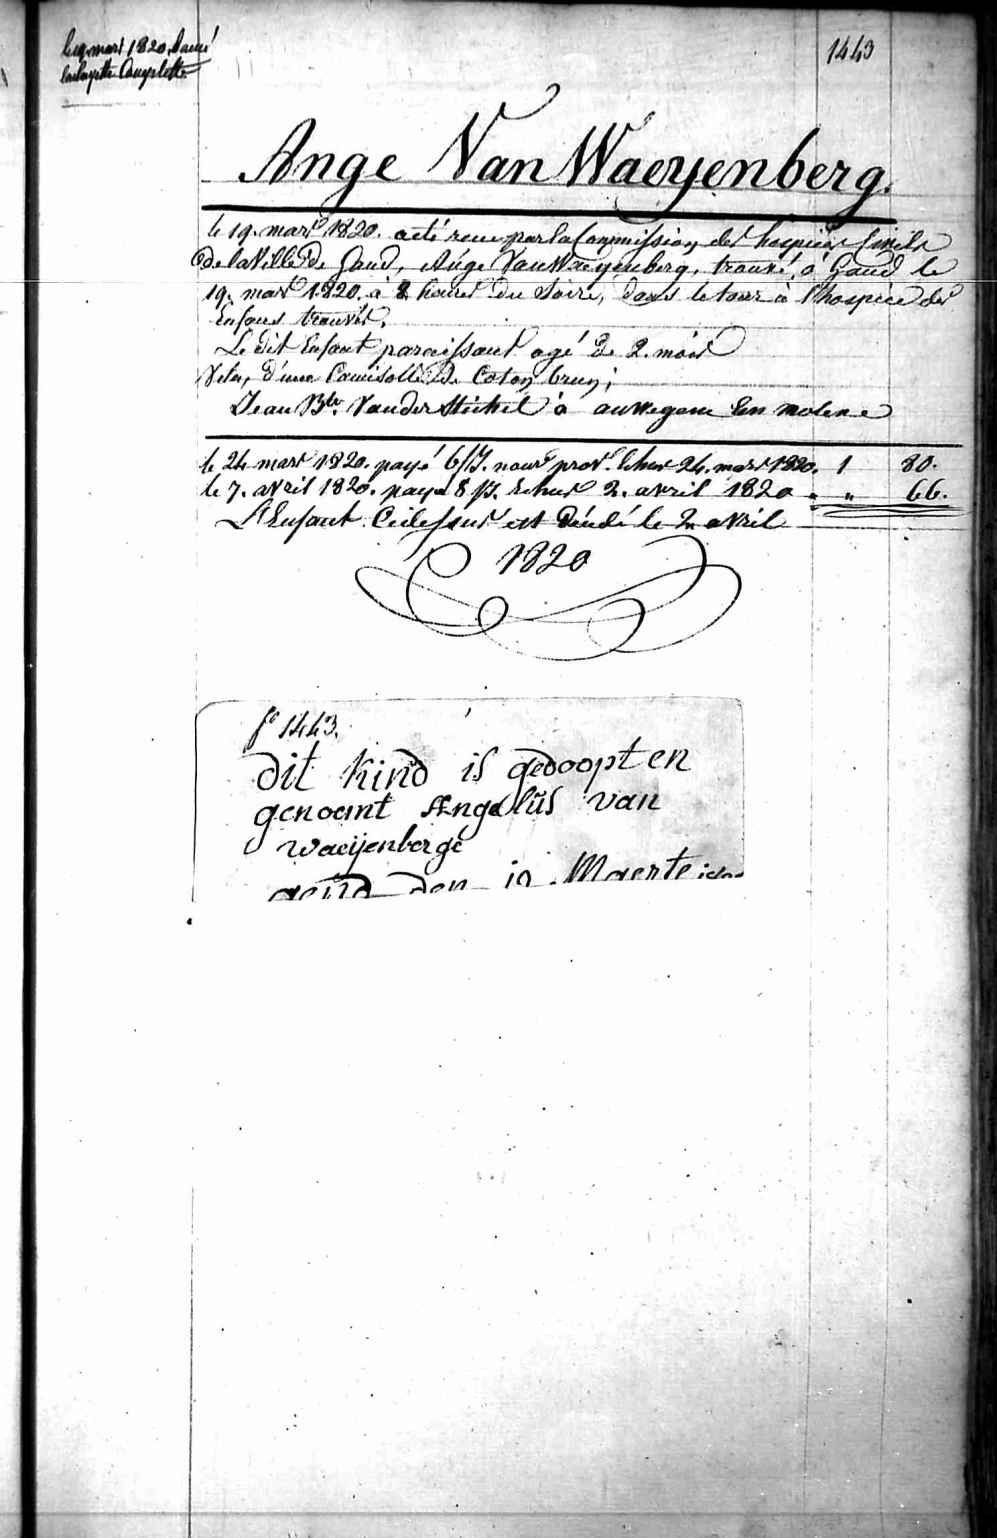 le 19 mars 1820 donné
la layette Complette
1443
Ange Van Waeyenberg.
le 19. mars 1820. a été recu par la Commission des hospices Civils
de la Ville de Gand, Ange Van Waeyenberg, trouvé à Gand le
19. mars 1820. à 8 heures du Soire, dans le tour à l'hospice des
Enfans trouvés.
Le dit Enfant paraissant agé de 2. mois
Vetu, d'une Camisolle de Coton brun;
Jean Bte. Vander Stichel à auwegem ten molene
le 24 mars 1820. payé 6/J. nour prov. Echus 24. mars 1820. 1 80.
le 7. avril 1820. paye 8 J. Echus 2. avril 1820 " " 66.
L'Enfant Cidessus est décédé le 2 avril
1820
fo 1443.
dit kind is gedoopt en
genoemt Angelus van
waeijenberge
gend den 19 Maerte